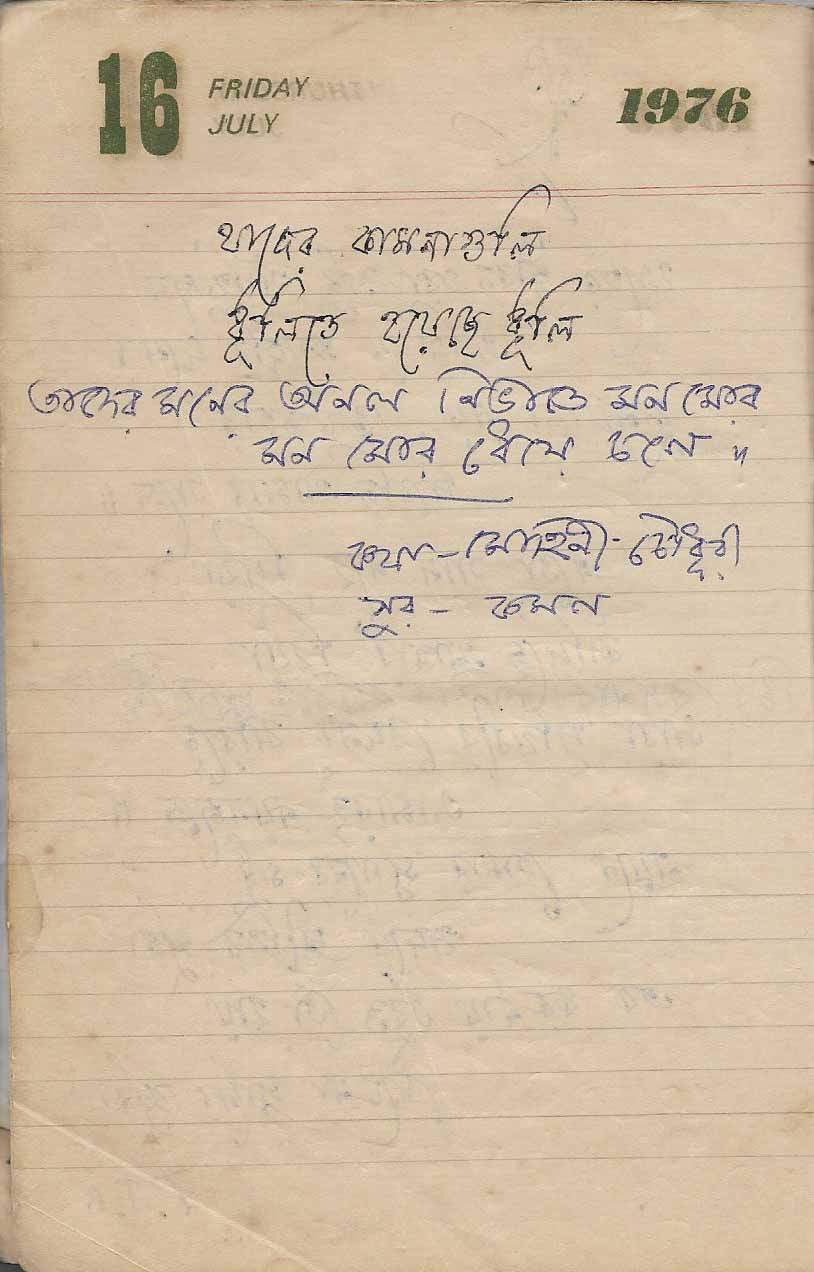 16 FRIDAY JULY 1976
যাদের কামনাগুলি
ধূলিতে হয়েছে ধূলি
তাদের মনের অনল নিভাতে মন মোর
মন মোর ধেয়ে চলে ॥
কথা - মোহিনী চৌধুরী
সুর - কমল